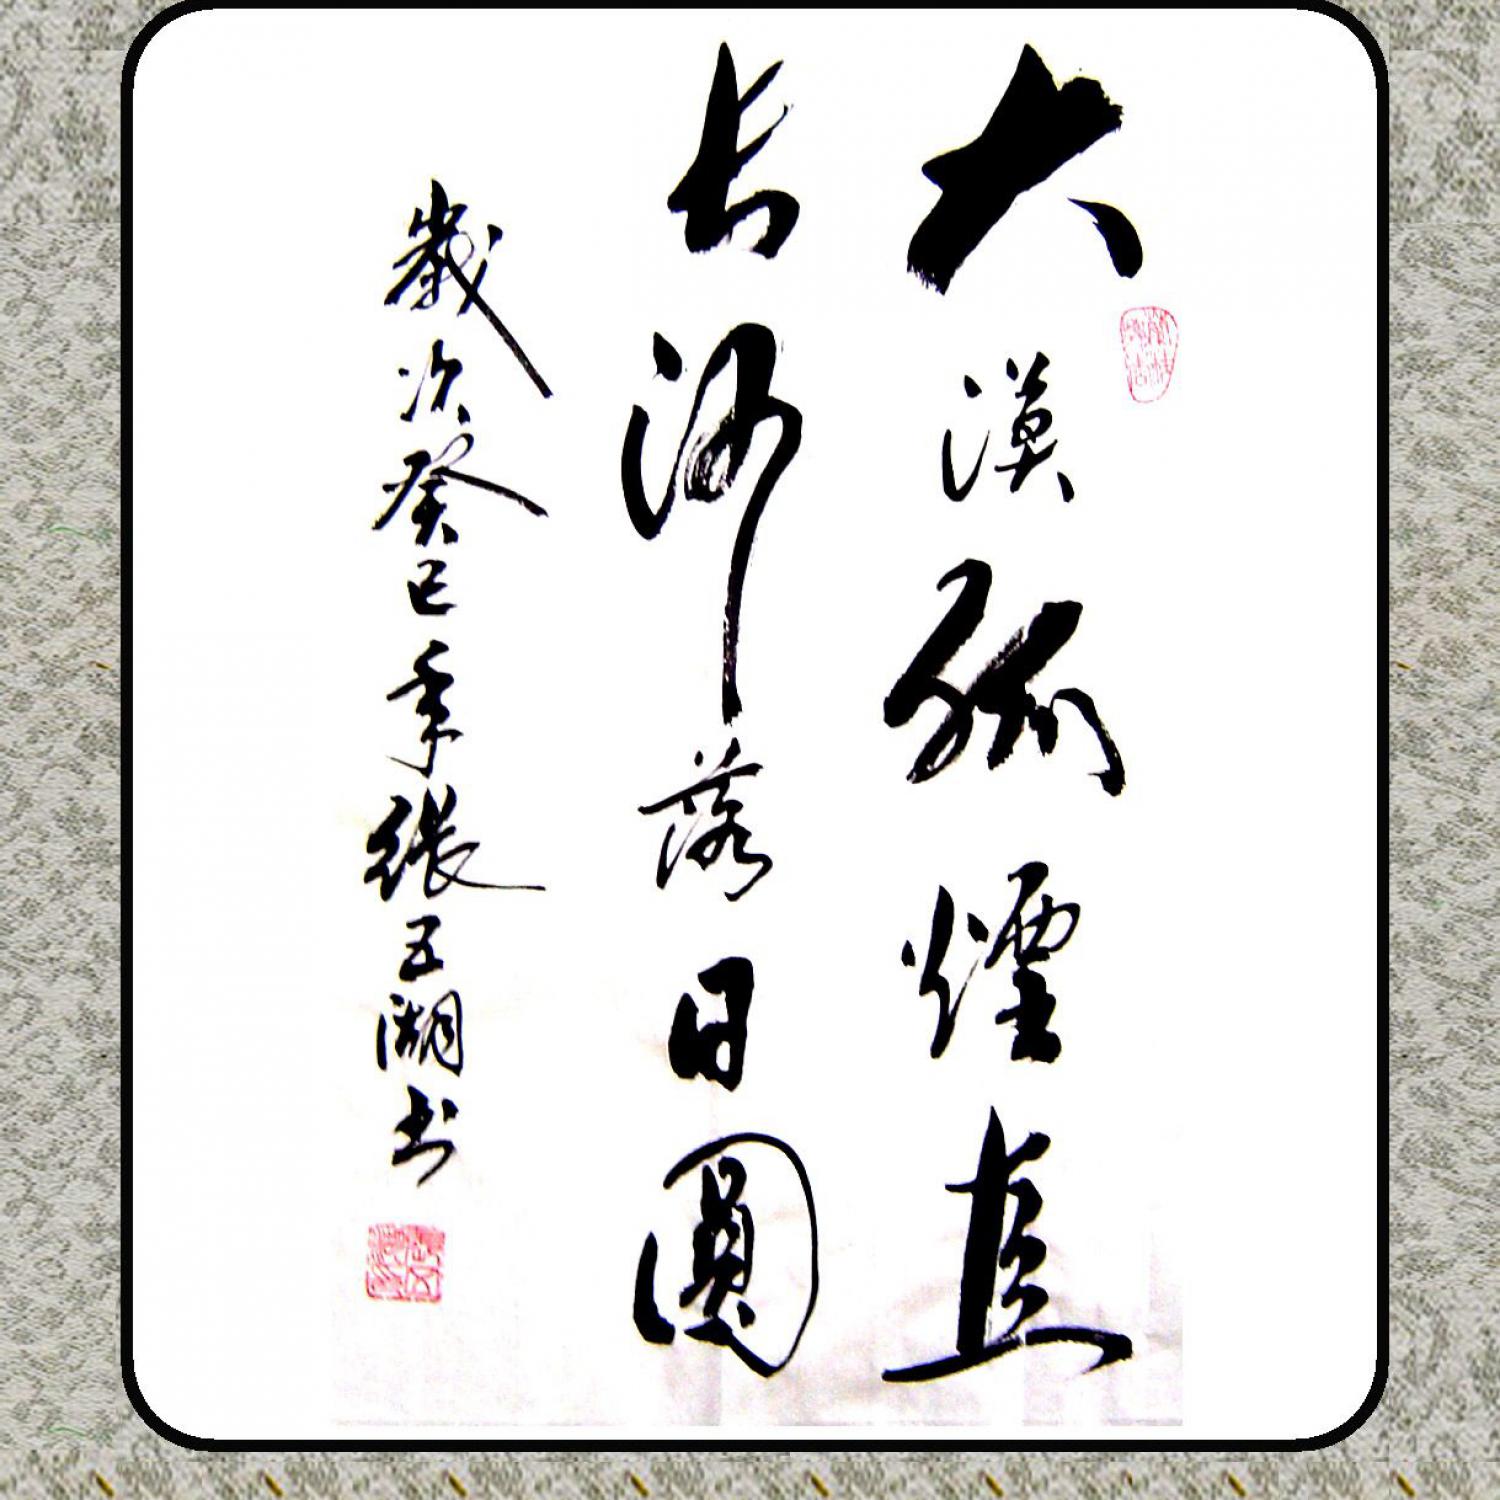 大漠孤煙直
长河落日圓
歲次癸巳季張五湖书